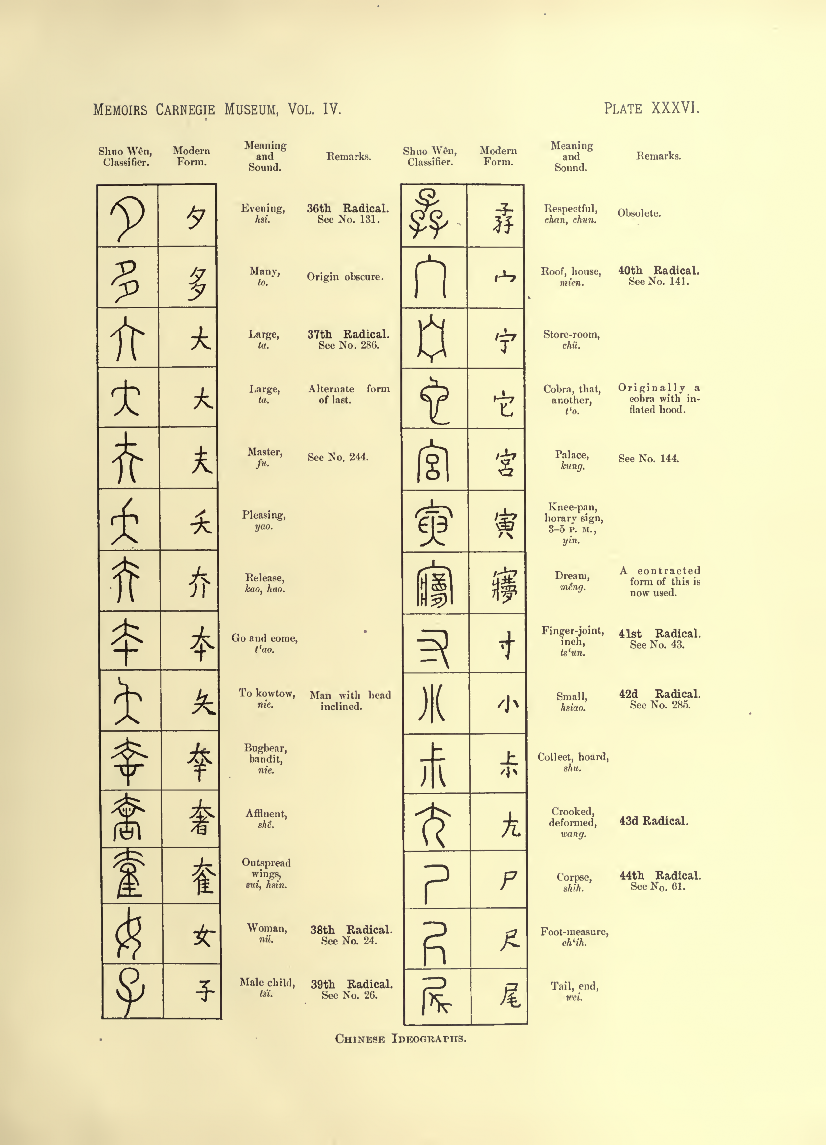 MEMOIRS CARNEGIE MUSEUM, VOL. IV.
PLATE XXXVI.
Shuo Wên, Classifier.
Modern Form.
Meaning and Sound.
Remarks.
夕
Evening,
hsi.
36th Radical.
See No. 131.
多
Many,
to.
Origin obscure.
大
Large,
ta.
37th Radical.
See No. 286.
大
Large,
ta.
Alternate form
of last.
夫
Master,
fu.
See No. 244.
夭
Pleasing,
yao.
夰
Release,
kao, hao.
夲
Go and come,
t‘ao.
夨
To kowtow,
nie.
Man with head
inclined.
㚔
Bugbear,
bandit,
nie.
奢
Affluent,
shê.
奞
Outspread
wings,
sui, hsin.
女
Woman,
nü.
38th Radical.
See No. 24.
子
Male child,
tsï.
39th Radical.
See No. 26.
Shuo Wên, Classifier.
Modern Form.
Meaning and Sound.
Remarks.
孨
Respectful,
chan, chun.
Obsolete.
宀
Roof, house,
mien.
40th Radical.
See No. 141.
宁
Store-room,
chü.
它
Cobra, that,
another,
t‘o.
Originally a
cobra with in-
flated hood.
宮
Palace,
kung.
See No. 144.
寅
Knee-pan,
horary sign,
3–5 P. M.,
yin.
Dream,
mêng.
A contracted
form of this is
now used.
寸
Finger-joint,
inch,
ts‘un.
41st Radical.
See No. 43.
小
Small,
hsiao.
42d Radical.
See No. 285.
尗
Collect, hoard,
shu.
尢
Crooked,
deformed,
wang.
43d Radical.
尸
Corpse,
shih.
44th Radical.
See No. 61.
尺
Foot-measure,
ch‘ih.
尾
Tail, end,
wei.
CHINESE IDEOGRAPHS.